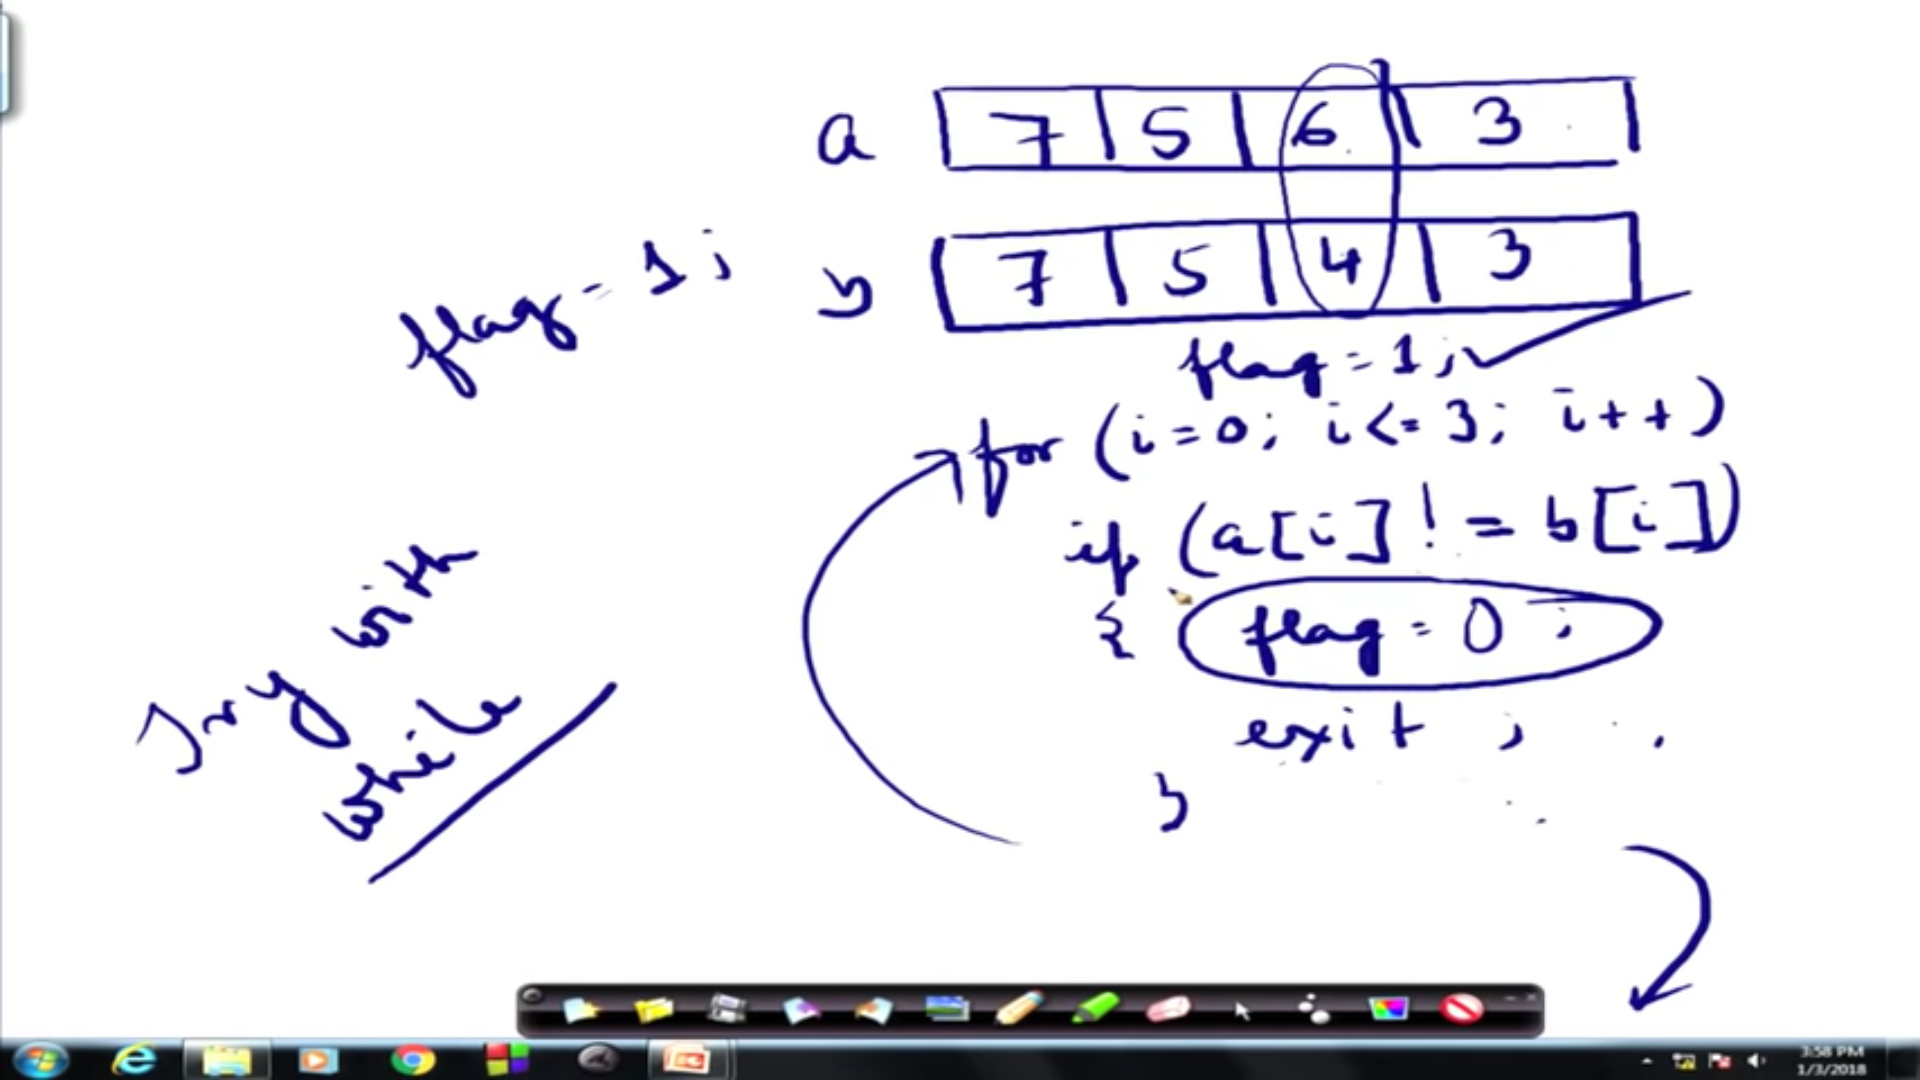 a 7 5 6 3
b 7 5 4 3
flag = 1;
flag = 1;
for (i=0; i<=3; i++)
if (a[i] != b[i])
{ flag = 0;
exit ;
}
Try with
while
3:58 PM
1/3/2018